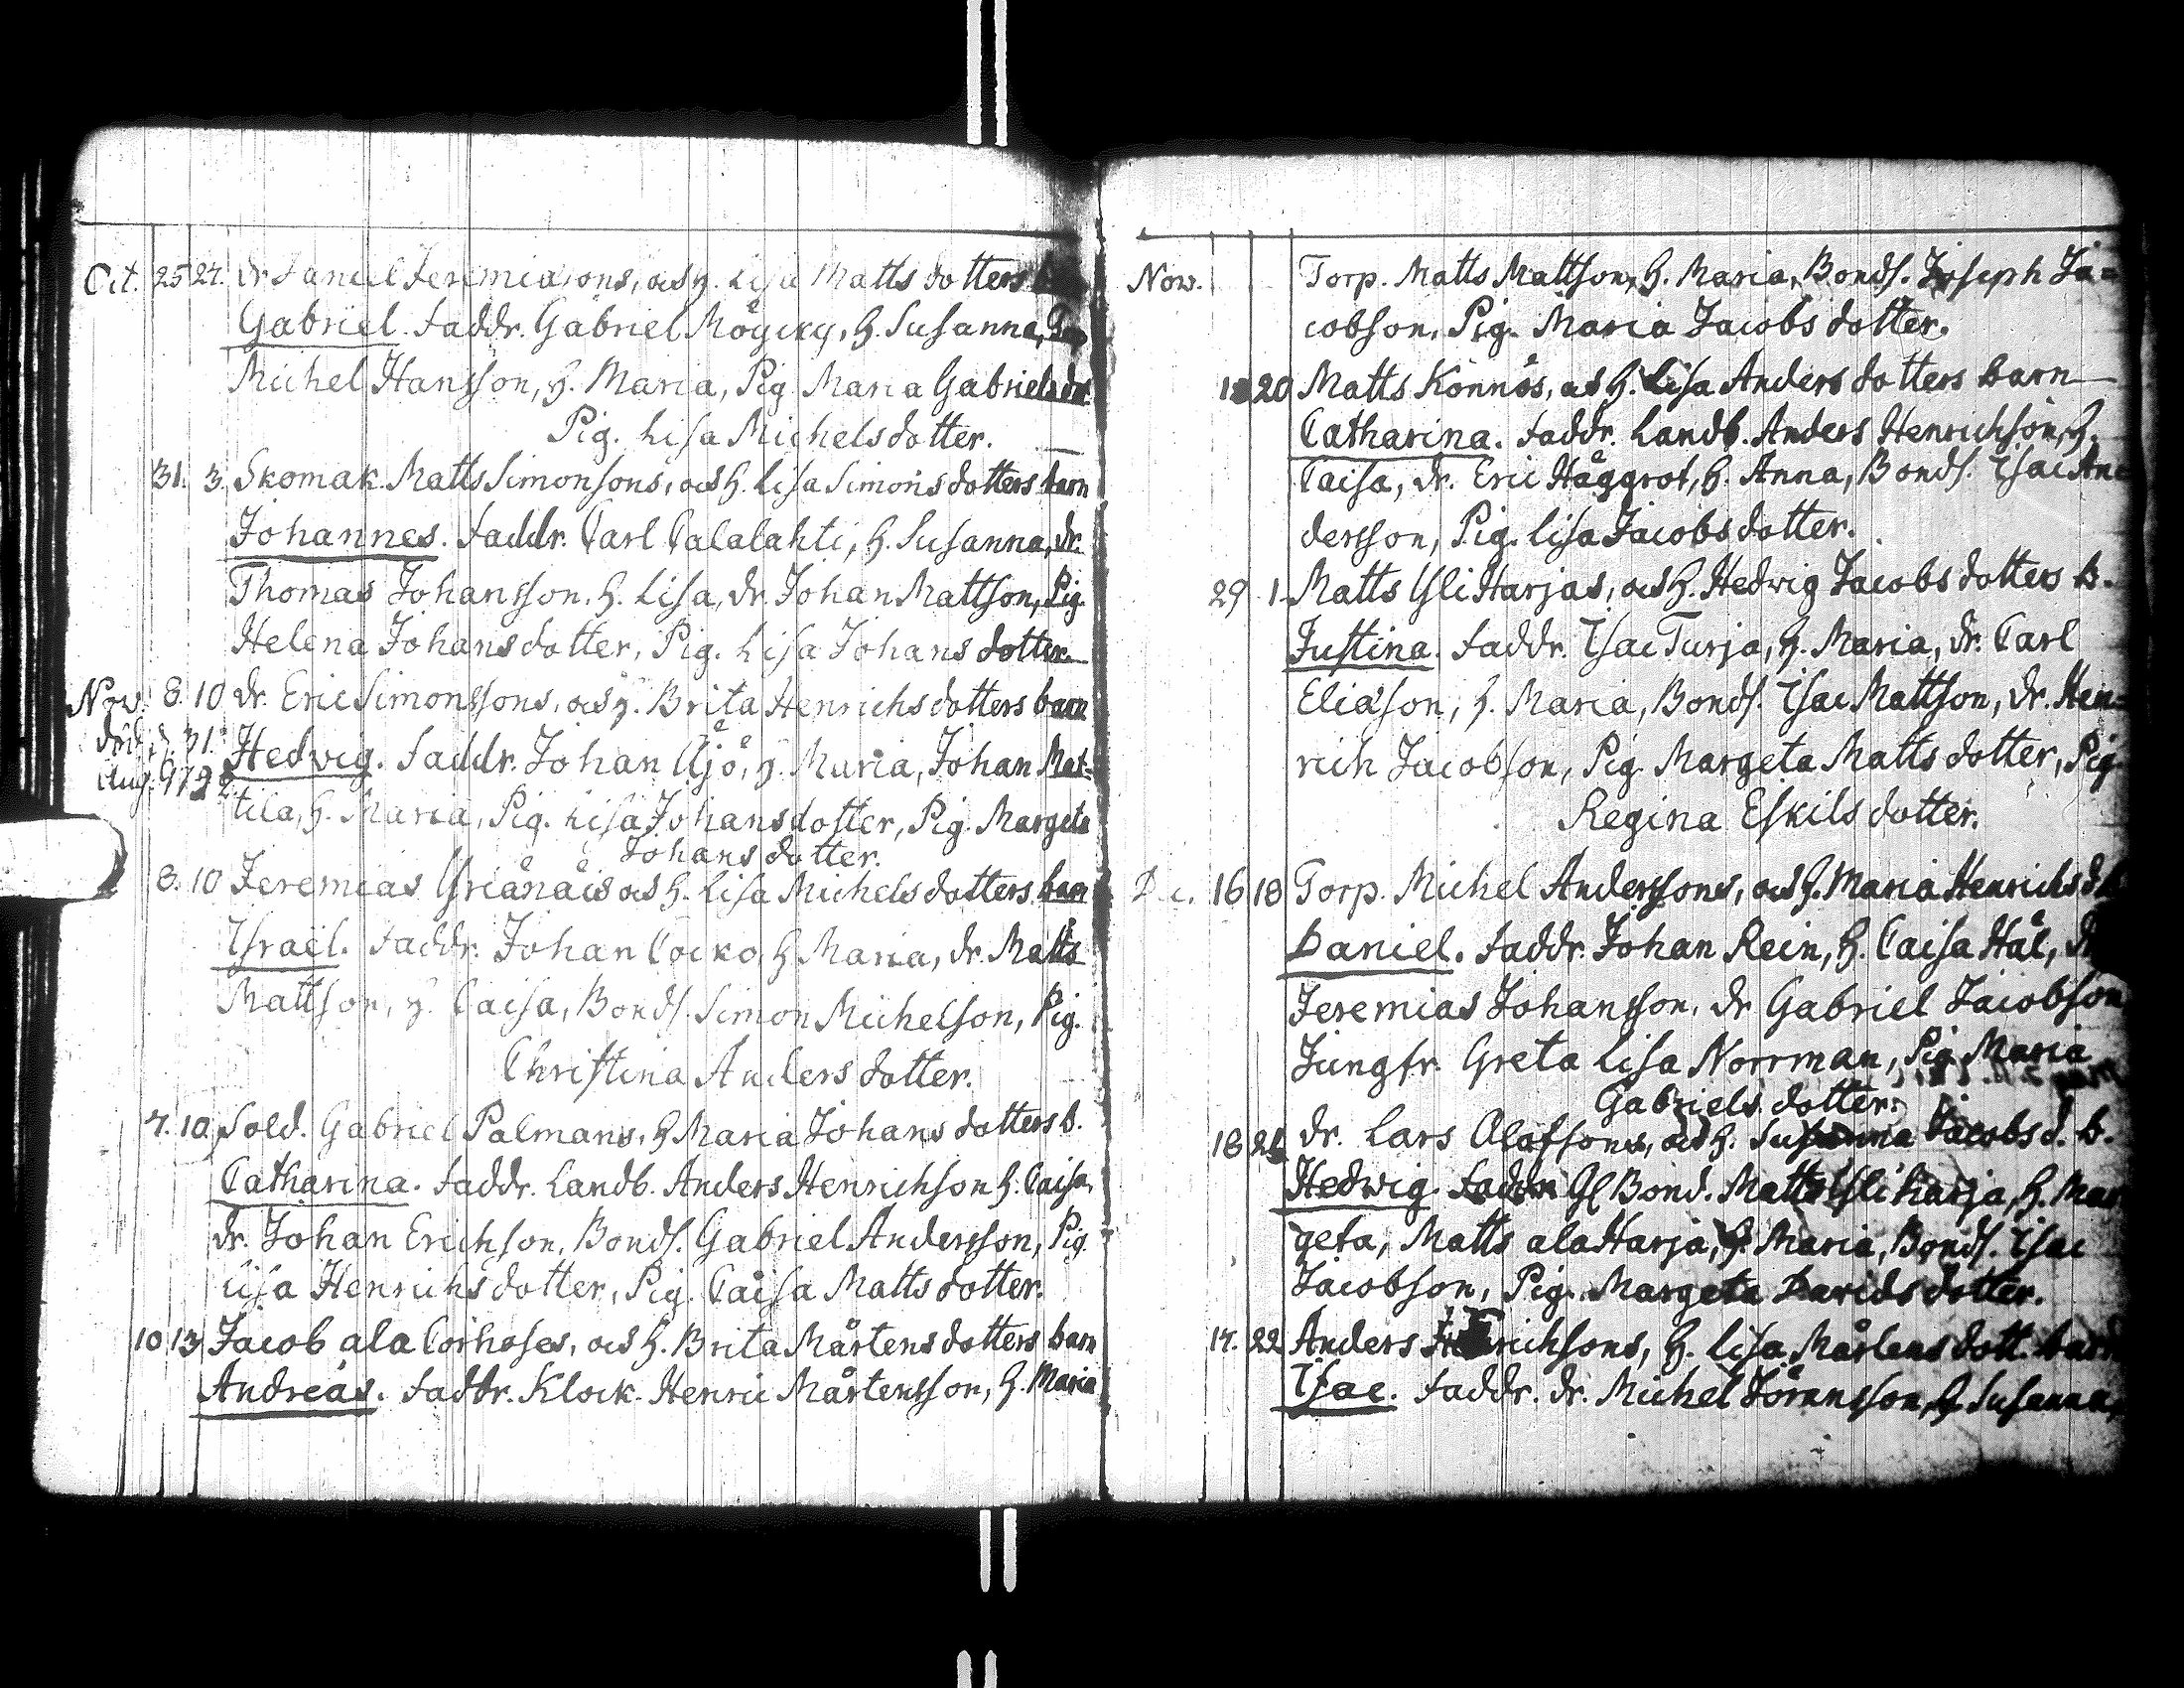 Oct. 25 27. dr Daniel Jeremiæsons, och h. Lisa Matts dotters
Gabriel. Faddr. Gabriel Röycky, h. Susanna,
Michel Hansson, h. Maria, Pig. Maria Gabriels dr.
Pig. Lisa Michelsdotter.
31. 3. Skomak. Matts Simonsons, och h. Lisa Simonsdotters barn
Johannes. Faddr. Carl Calalahti, h. Susanna, dr.
Thomas Johansson, h. Lisa, dr. Johan Mattson, Pig.
Helena Johansdotter, Pig. Lisa Johans dotter.
Nov. 8. 10 dr. Eric Simonssons, och h. Brita Henrichsdotters barn
död d. 31.
Aug. 1792
Hedvig. Faddr. Johan Åjö, h. Maria, Johan Mat-
tila, h. Maria, Pig. Lisa Johansdotter, Pig. Margeta
Johans dotter.
8. 10 Jeremias Yriånåis och h. Lisa Michelsdotters barn
Israël. Faddr. Johan Cocko, h. Maria, dr. Matts
Mattson, h. Caisa, Bonds. Simon Michelson, Pig.
Christina Anders dotter.
7. 10. Sold. Gabriel Palmans, h Maria Johans dotters b.
Catharina. Faddr. Landb. Anders Henrichson h. Caisa,
dr. Johan Erichson, Bonds. Gabriel Andersson, Pig.
Lisa Henrichs dotter, Pig. Caisa Matts dotter.
10 13 Jacob ala Corhoses, och h. Brita Mårtensdotters barn
Andreas. Faddr. Klock. Henric Mårtensson, h. Maria
Nov. Torp. Matts Mattson, h. Maria, Bonds. Joseph Ja=
cobson, Pig. Maria Jacobs dotter.
20 Matts Könnös, och h. Lisa Anders dotters barn
Catharina. Faddr. Landb. Anders Henrichson, h.
Caisa, dr. Eric Håggrot, h. Anna, Bonds. Isac An-
dersson, Pig. Lisa Jacobs dotter.
29 1. Matts YliHarjas, och h. Hedwig Jacobs dotters b.
Justina. Faddr. Isac Turja, h. Maria, dr. Carl
Eliæson, h. Maria, Bonds. Isac Mattson, dr. Hen=
rich Jacobson, Pig. Margeta Matts dotter, Pig
Regina Eskils dotter.
Dec. 16 18 Torp. Michel Anderssons, och h. Maria Henrichs d. b
Daniel. Faddr. Johan Rein, h. Caisa Hål, dr
Jeremias Johansson, dr Gabriel Jacobson
Jungfr. Greta Lisa Norrman, Pig. Maria
Gabriels dotter.
18 21 dr. Lars Olofsons, och h. Susanna Jacobs d. b.
Hedwig. Faddr Gl Bond. Matts Yliharja, h. Mar
geta, Matts alaHarja, h. Maria, Bonds. Isac
Jacobson, Pig. Margeta Davids dotter.
17. 22 Anders Henrichsons, h. Lisa Mårtens dott. barn
Isac. Faddr. dr. Michel Jöransson, h Susanna,